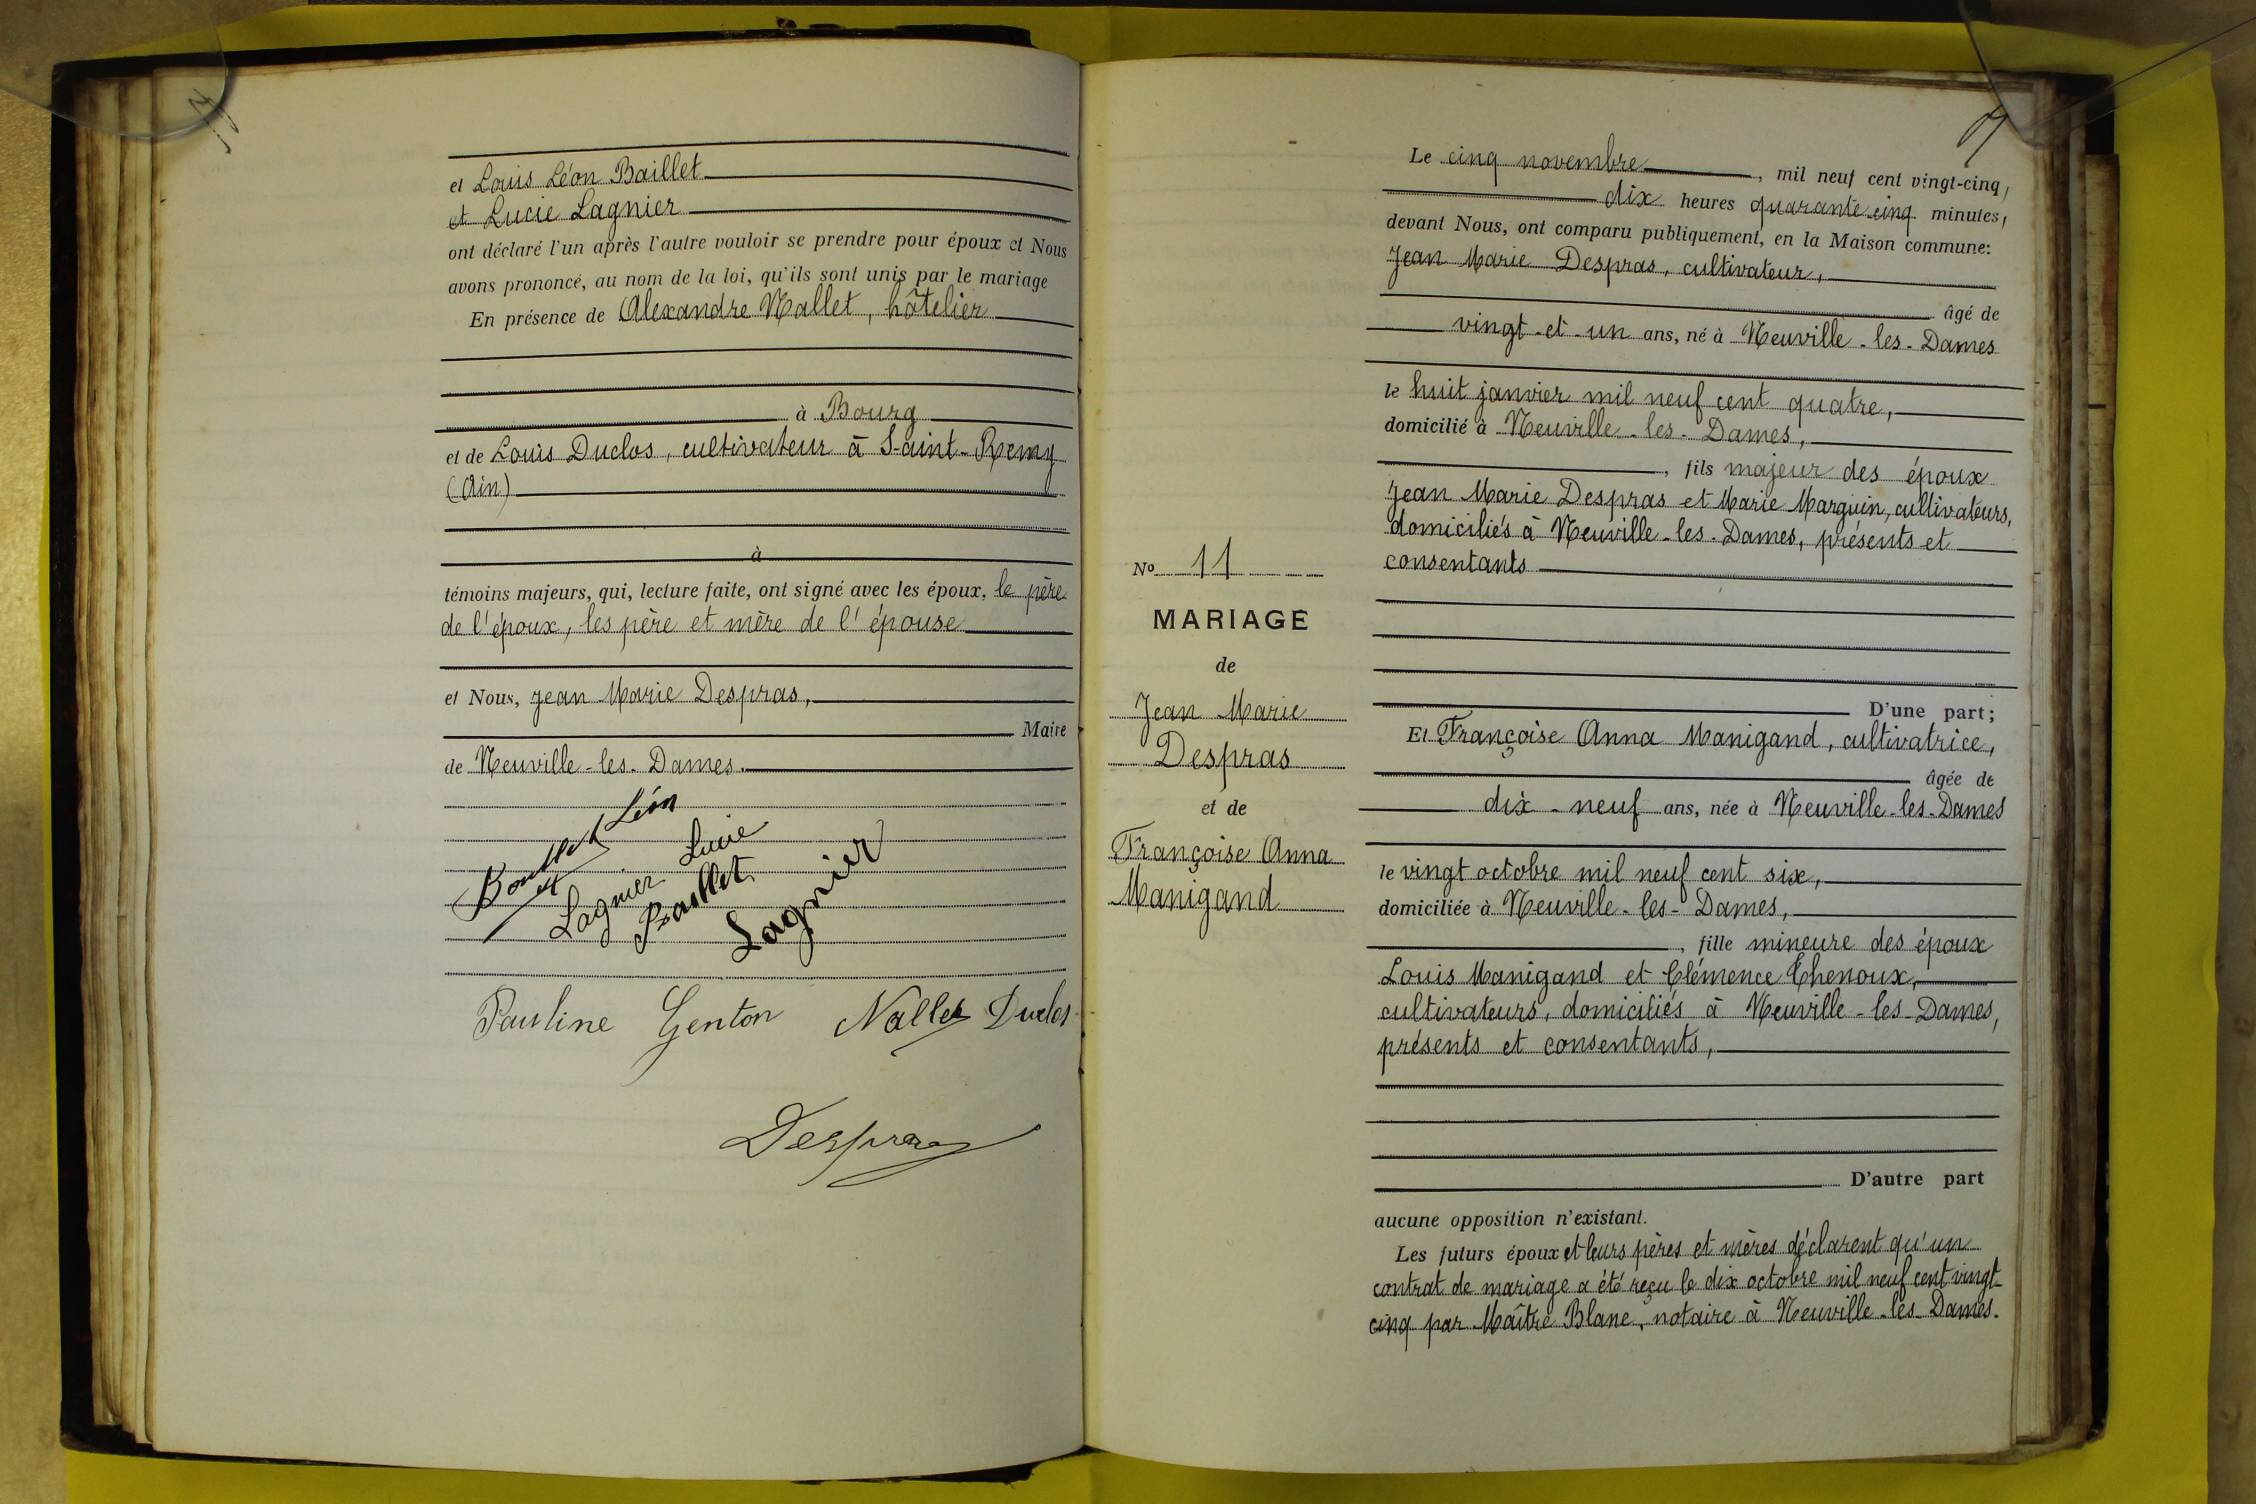 et Louis Léon Baillet
et Lucie Lagnier
ont déclaré l'un après l'autre vouloir se prendre pour époux et Nous
avons prononcé, au nom de la loi, qu'ils sont unis par le mariage
En présence de Alexandre Nallet, hôtelier
à Bourg
et de Louis Duclos, cultivateur à Saint-Remy
(Ain)
à
témoins majeurs, qui, lecture faite, ont signé avec les époux, le père
de l'époux, les père et mère de l'épouse
et Nous, Jean Marie Despras,
Maire
de Neuville-les-Dames.
Léon
Lagnier Lucie
Baillet
Lagnier
Pauline Genton Nallet Duclos
Despras
Le cinq novembre, mil neuf cent vingt-cinq,
dix heures quarante cinq minutes,
devant Nous, ont comparu publiquement, en la Maison commune:
Jean Marie Despras, cultivateur,
âgé de
vingt-et-un ans, né à Neuville-les-Dames
le huit janvier mil neuf cent quatre,
domicilié à Neuville-les-Dames,
, fils majeur des époux
Jean Marie Despras et Marie Marguin, cultivateurs,
domiciliés à Neuville-les-Dames, présents et
consentants
D'une part;
Et Françoise Anna Manigand, cultivatrice,
âgée de
dix-neuf ans, née à Neuville-les-Dames
le vingt octobre mil neuf cent six,
domiciliée à Neuville-les-Dames,
, fille mineure des époux
Louis Manigand et Clémence Chenoux,
cultivateurs, domiciliés à Neuville-les-Dames,
présents et consentants,
D'autre part
aucune opposition n'existant.
Les futurs époux et leurs pères et mères déclarent qu'un
contrat de mariage a été reçu le dix octobre mil neuf cent vingt-
cinq par Maître Blanc, notaire à Neuville-les-Dames.
No 11
MARIAGE
de
Jean Marie
Despras
et de
Françoise Anna
Manigand